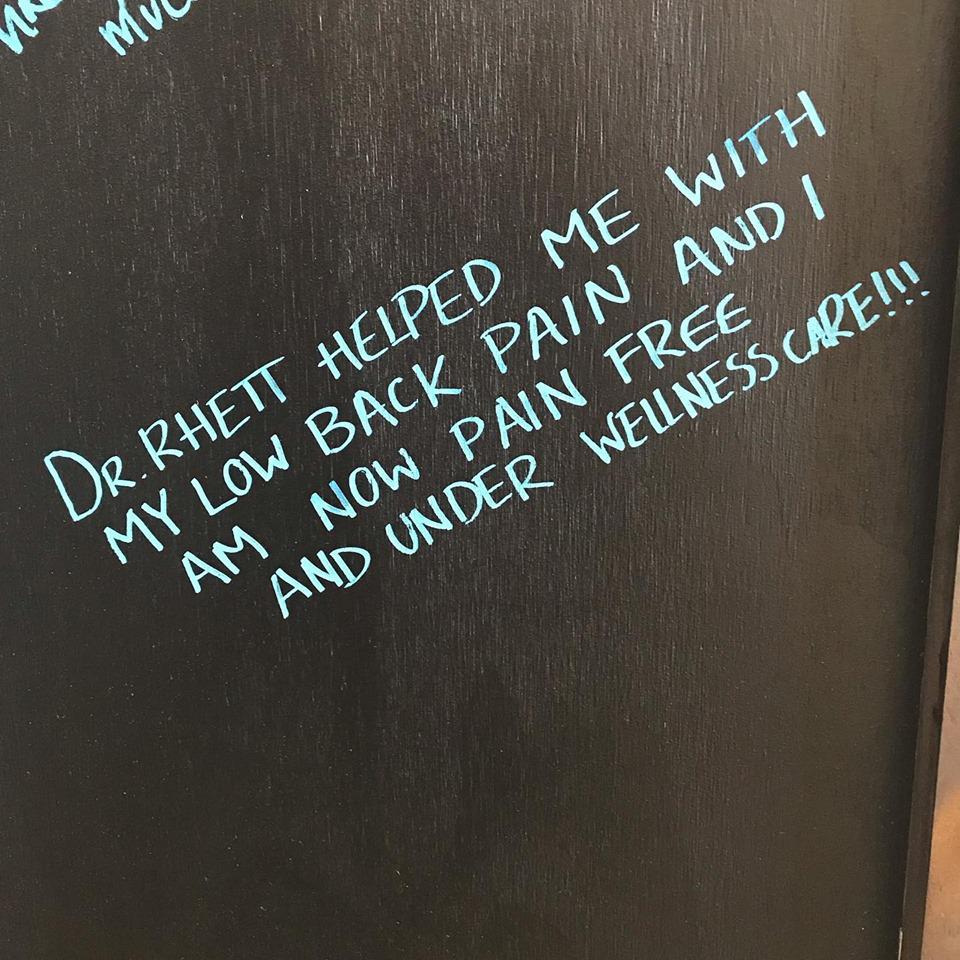 DR. RHETT HELPED ME WITH
MY LOW BACK PAIN AND I
AM NOW PAIN FREE
AND UNDER WELLNESS CARE!!!